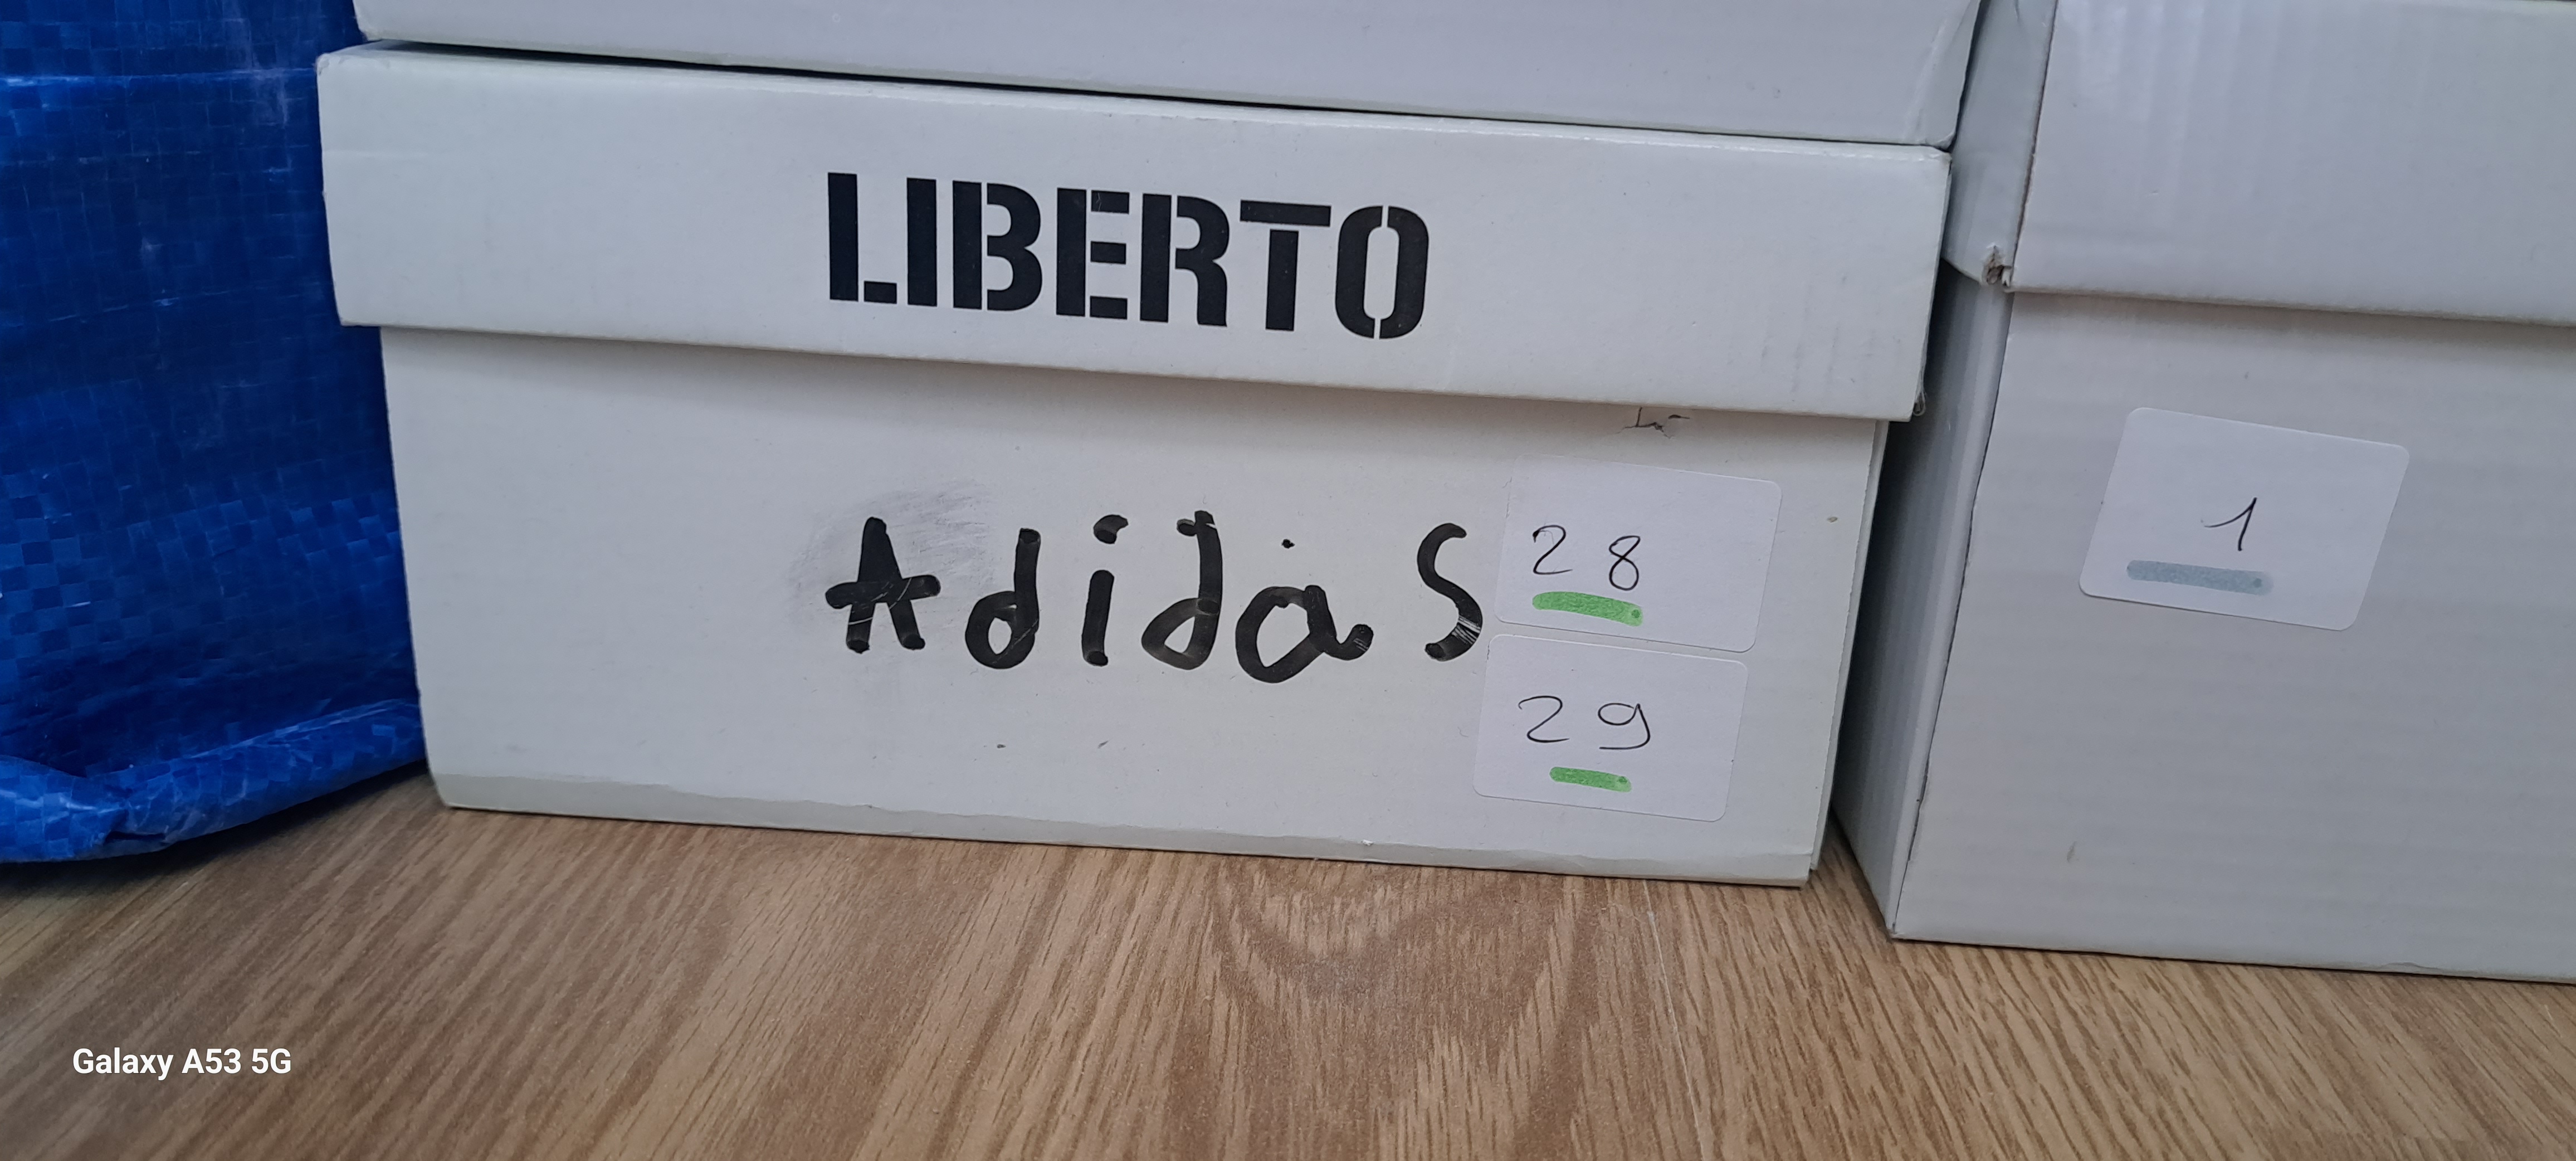 LIBERTO
Adidas
28
29
1
Galaxy A53 5G